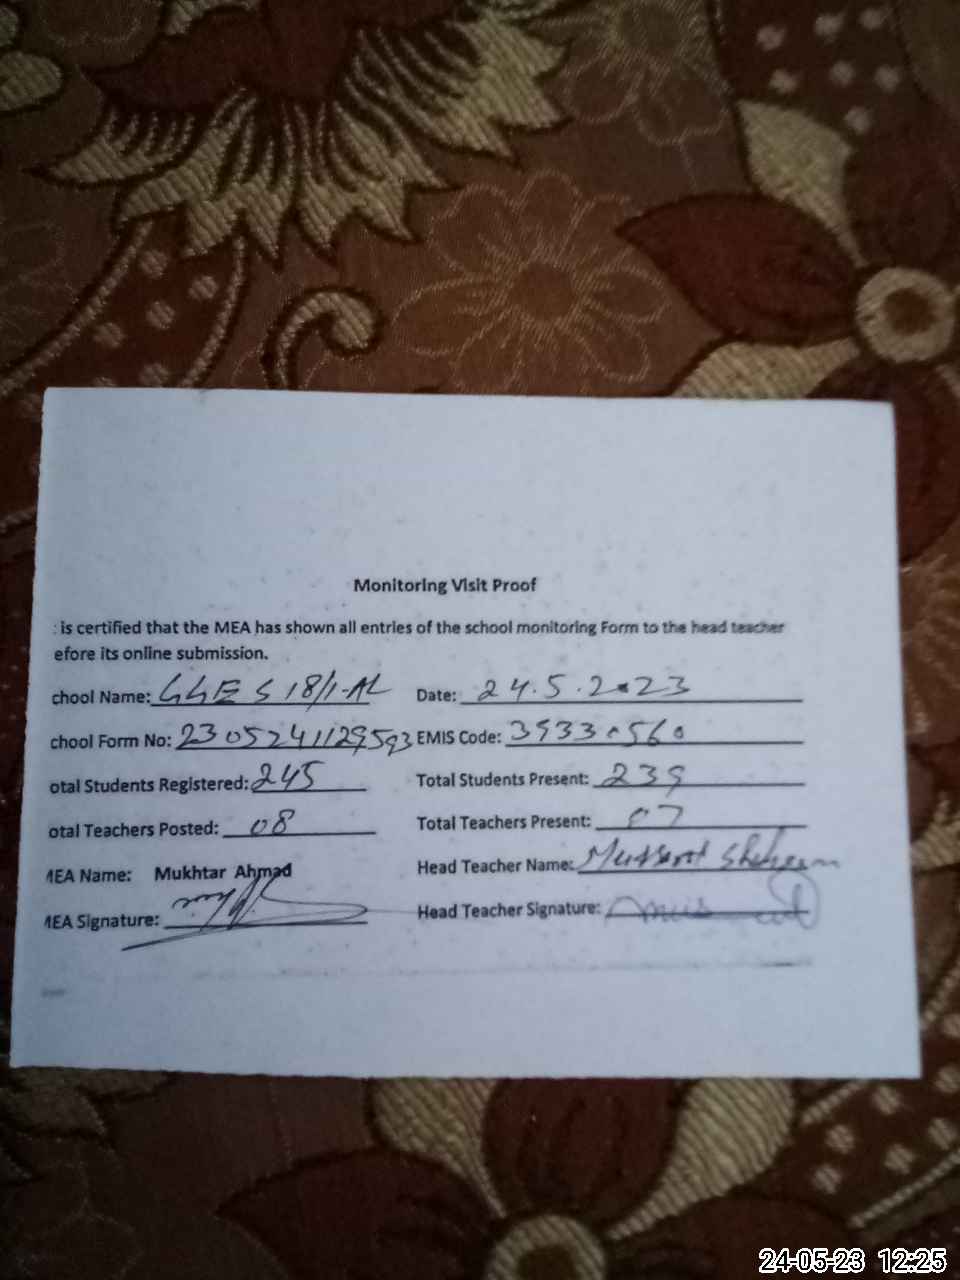 Monitoring Visit Proof
: is certified that the MEA has shown all entries of the school monitoring Form to the head teacher
efore its online submission.
chool Name: GGES 18/1-AL Date: 24.5.2023
chool Form No: 2305241129593 EMIS Code: 39330560
otal Students Registered: 245 Total Students Present: 239
otal Teachers Posted: 08 Total Teachers Present: 07
MEA Name: Mukhtar Ahmad Head Teacher Name: Mussarat Shaheen
MEA Signature: Head Teacher Signature:
24-05-23 12:25